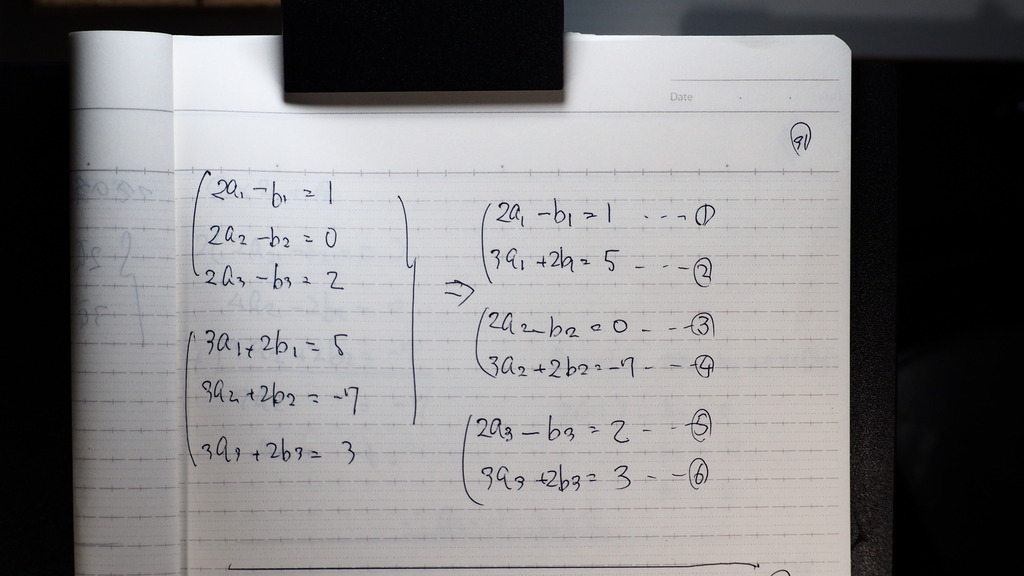 Date
91
2a₁ - b₁ = 1
2a₂ - b₂ = 0
2a₃ - b₃ = 2
3a₁ + 2b₁ = 5
3a₂ + 2b₂ = -7
3a₃ + 2b₃ = 3
⇒
2a₁ - b₁ = 1 --- ①
3a₁ + 2b₁ = 5 --- ②
2a₂ - b₂ = 0 --- ③
3a₂ + 2b₂ = -7 --- ④
2a₃ - b₃ = 2 --- ⑤
3a₃ + 2b₃ = 3 --- ⑥